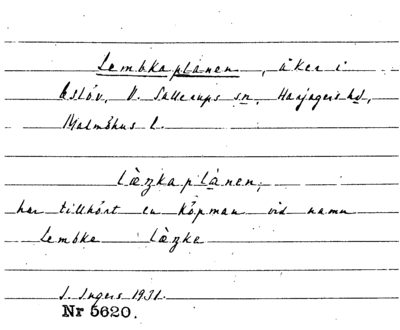 Lembkaplånen, åker i
Eslöv, V. Sallerups sn, Harjagers hd,
Malmöhus l.
lɛ̀ŋkaplånen;
har tillhört en köpman vid namn
Lembke lɛ̀ŋke
I. Ingers 1931.
Nr 5620.